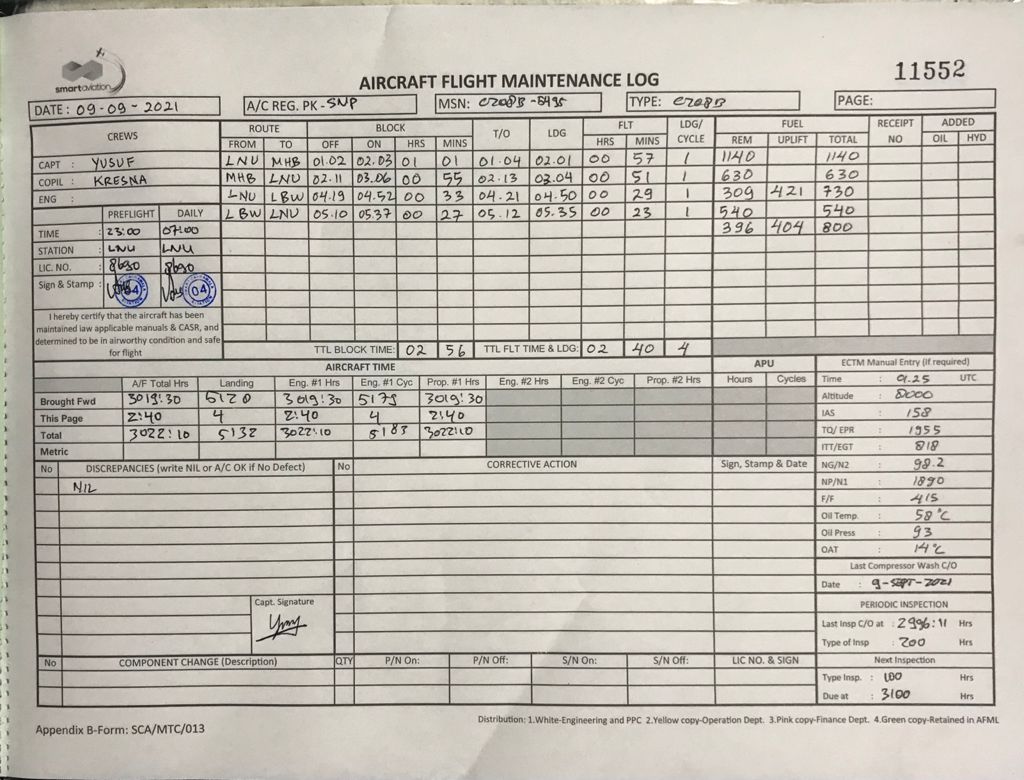 smartaviation
AIRCRAFT FLIGHT MAINTENANCE LOG
11552
DATE : 09-09-2021 A/C REG. PK - SNP MSN: C208B-5495 TYPE: C208B PAGE:
CREWS ROUTE BLOCK T/O LDG FLT LDG/ CYCLE FUEL RECEIPT NO ADDED
FROM TO OFF ON HRS MINS HRS MINS REM UPLIFT TOTAL OIL HYD
CAPT : YUSUF LNU MHB 01.02 02.03 01 01 01.04 02.01 00 57 1 1140 1140
COPIL : KRESNA MHB LNU 02.11 03.06 00 55 02.13 03.04 00 51 1 630 630
ENG : LNU LBW 04.19 04.52 00 33 04.21 04.50 00 29 1 309 421 730
PREFLIGHT DAILY LBW LNU 05.10 05.37 00 27 05.12 05.35 00 23 1 540 540
TIME : 23:00 07:00 396 404 800
STATION : LNU LNU
LIC. NO. : 8690 8690
Sign & Stamp : 04 04
I hereby certify that the aircraft has been
maintained iaw applicable manuals & CASR, and
determined to be in airworthy condition and safe
for flight
TTL BLOCK TIME: 02 56 TTL FLT TIME & LDG: 02 40 4
AIRCRAFT TIME APU ECTM Manual Entry (if required)
A/F Total Hrs Landing Eng. #1 Hrs Eng. #1 Cyc Prop. #1 Hrs Eng. #2 Hrs Eng. #2 Cyc Prop. #2 Hrs Hours Cycles Time : 01.25 UTC
Brought Fwd 3019:30 5128 3019:30 5179 3019:30 Altitude : 8000
This Page 2:40 4 2:40 4 2:40 IAS : 158
Total 3022:10 5132 3022:10 5183 3022:10 TQ/ EPR : 1955
Metric ITT/EGT : 818
No DISCREPANCIES (write NIL or A/C OK if No Defect) No CORRECTIVE ACTION Sign, Stamp & Date NG/N2 : 98.2
NIL NP/N1 : 1890
F/F : 415
Oil Temp. : 58 °C
Oil Press : 93
OAT : 14 °C
Last Compressor Wash C/O
Date : 9-SEPT-2021
Capt. Signature
PERIODIC INSPECTION
Last Insp C/O at : 2996:11 Hrs
Type of Insp : 200 Hrs
No COMPONENT CHANGE (Description) QTY P/N On: P/N Off: S/N On: S/N Off: LIC NO. & SIGN Next Inspection
Type Insp. : 100 Hrs
Due at : 3100 Hrs
Distribution: 1.White-Engineering and PPC 2.Yellow copy-Operation Dept. 3.Pink copy-Finance Dept. 4.Green copy-Retained in AFML
Appendix B-Form: SCA/MTC/013